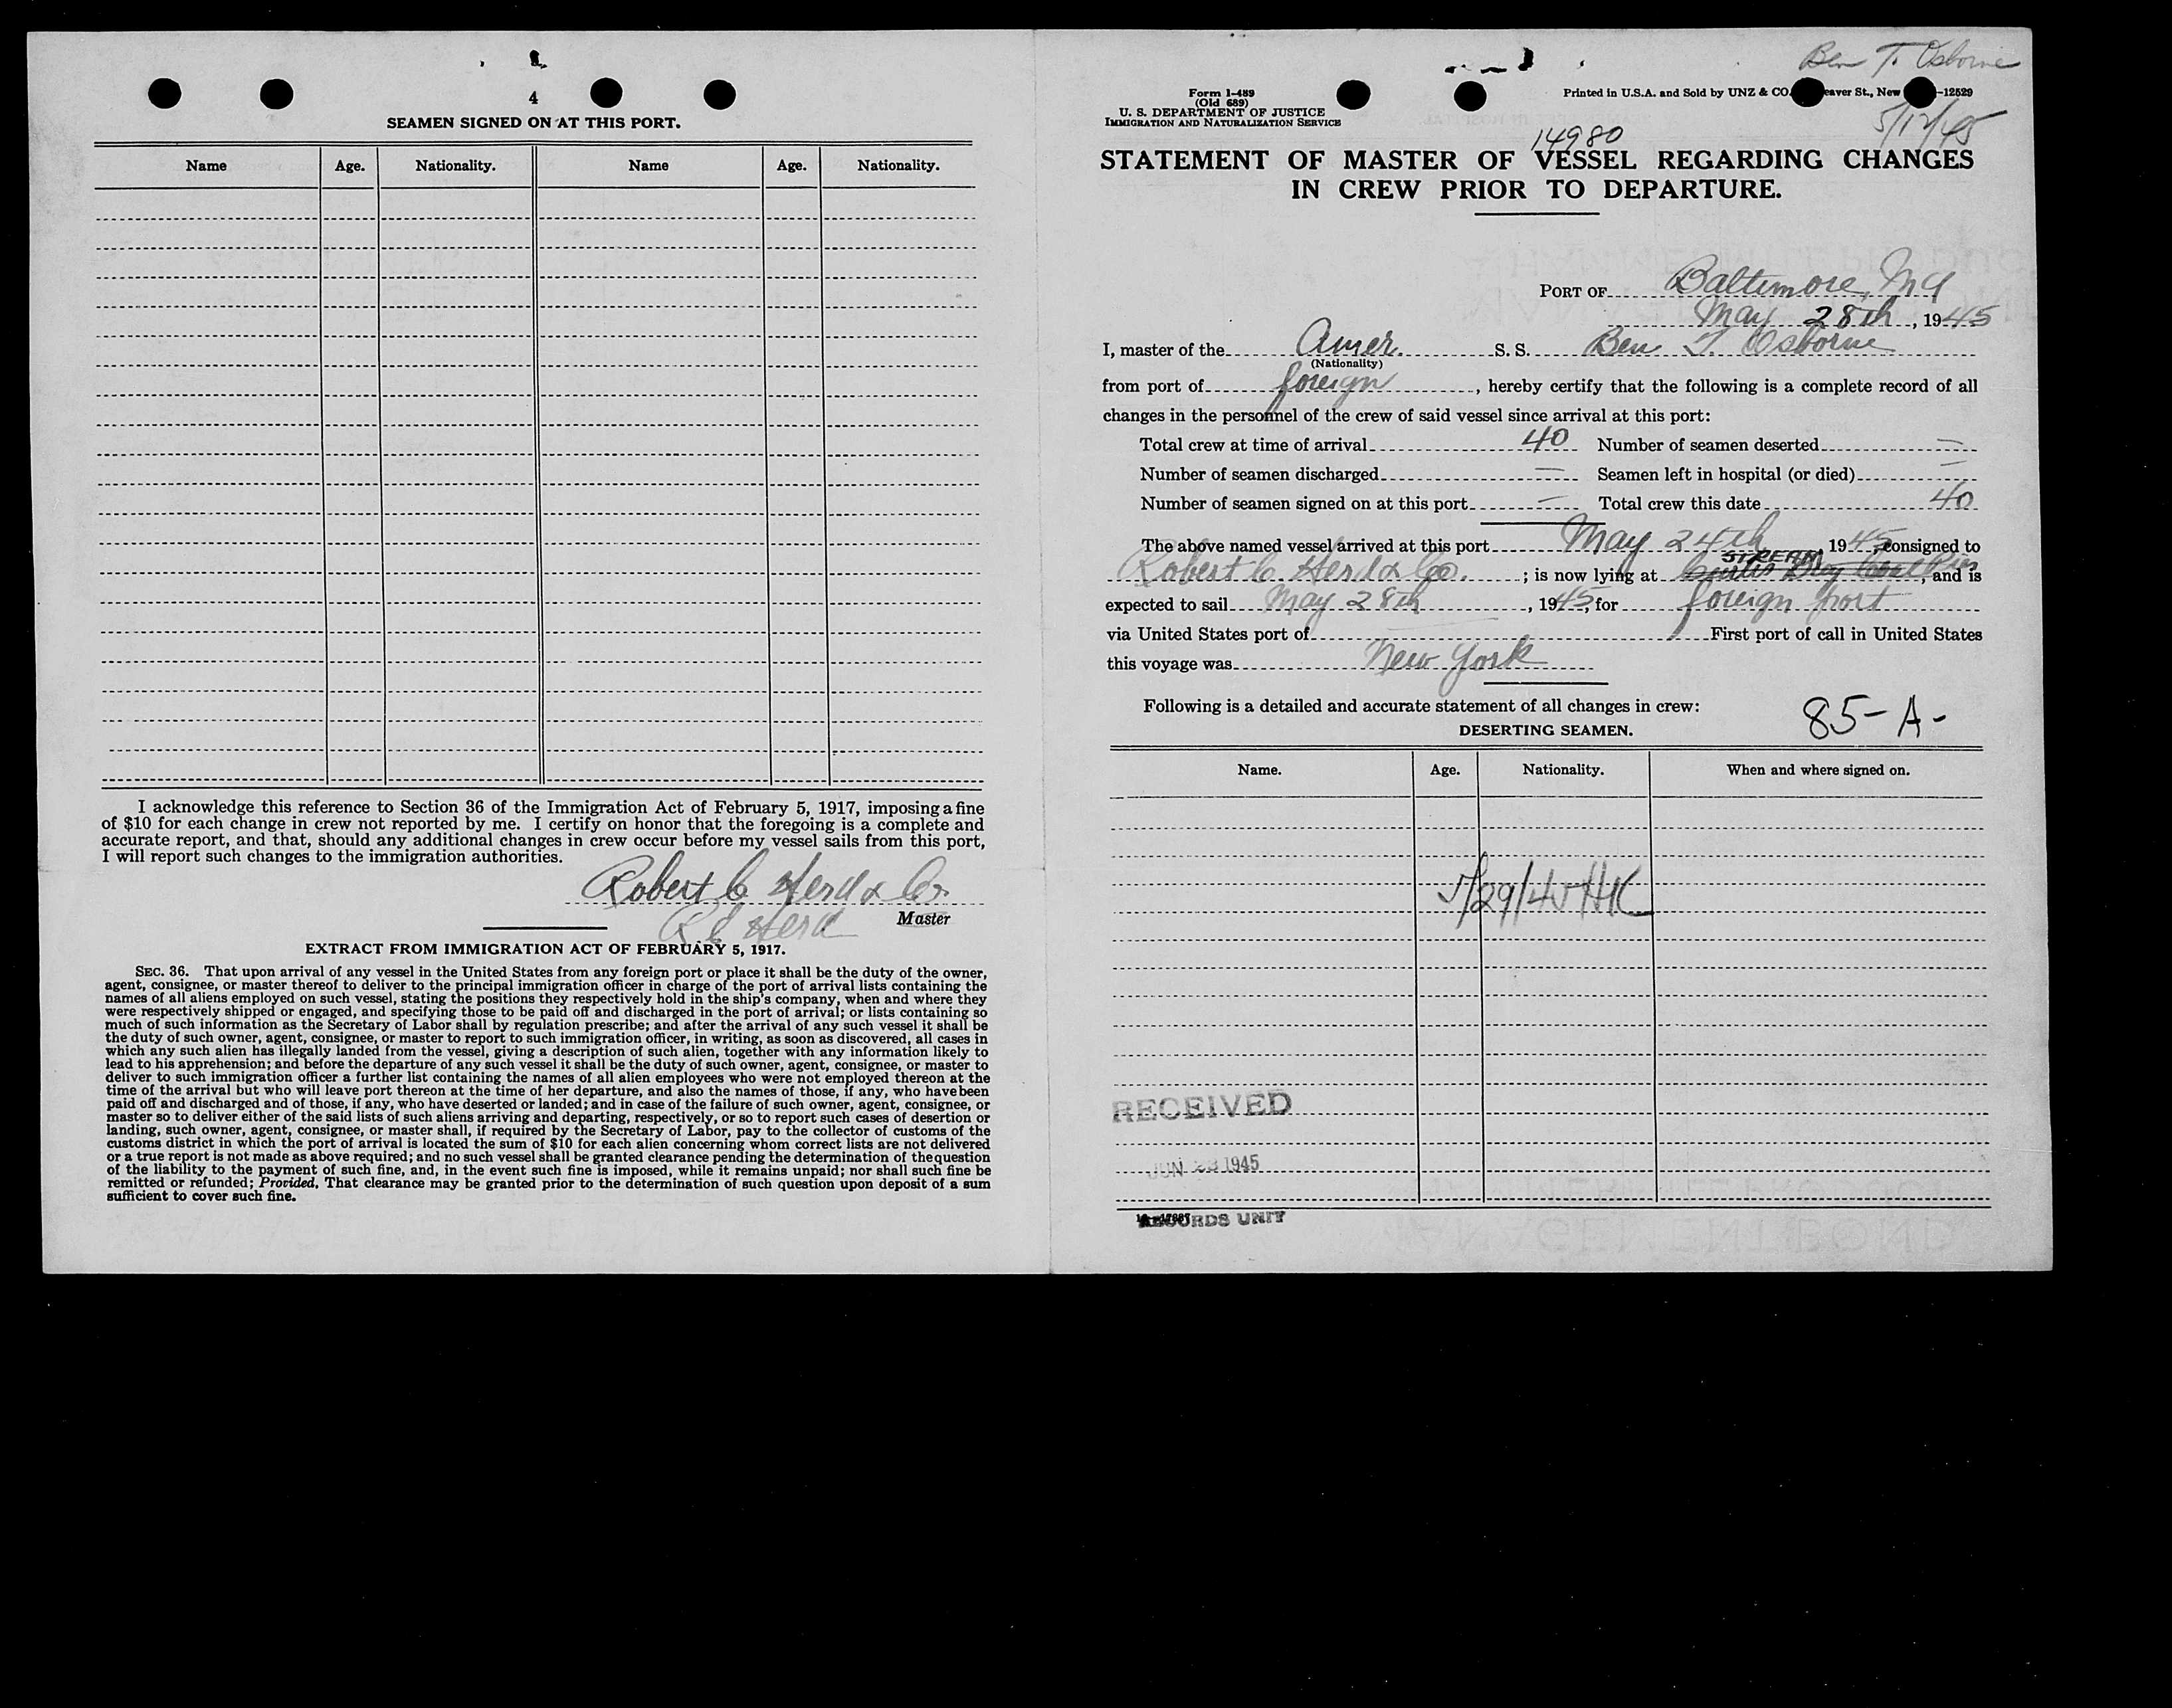 4
SEAMEN SIGNED ON AT THIS PORT.
Name Age. Nationality. Name Age. Nationality.
I acknowledge this reference to Section 36 of the Immigration Act of February 5, 1917, imposing a fine
of $10 for each change in crew not reported by me. I certify on honor that the foregoing is a complete and
accurate report, and that, should any additional changes in crew occur before my vessel sails from this port,
I will report such changes to the immigration authorities.
Robert C Herd & Co.
R C Herd Master
EXTRACT FROM IMMIGRATION ACT OF FEBRUARY 5, 1917.
SEC. 36. That upon arrival of any vessel in the United States from any foreign port or place it shall be the duty of the owner,
agent, consignee, or master thereof to deliver to the principal immigration officer in charge of the port of arrival lists containing the
names of all aliens employed on such vessel, stating the positions they respectively hold in the ship's company, when and where they
were respectively shipped or engaged, and specifying those to be paid off and discharged in the port of arrival; or lists containing so
much of such information as the Secretary of Labor shall by regulation prescribe; and after the arrival of any such vessel it shall be
the duty of such owner, agent, consignee, or master to report to such immigration officer, in writing, as soon as discovered, all cases in
which any such alien has illegally landed from the vessel, giving a description of such alien, together with any information likely to
lead to his apprehension; and before the departure of any such vessel it shall be the duty of such owner, agent, consignee, or master to
deliver to such immigration officer a further list containing the names of all alien employees who were not employed thereon at the
time of the arrival but who will leave port thereon at the time of her departure, and also the names of those, if any, who have been
paid off and discharged and of those, if any, who have deserted or landed; and in case of the failure of such owner, agent, consignee, or
master so to deliver either of the said lists of such aliens arriving and departing, respectively, or so to report such cases of desertion or
landing, such owner, agent, consignee, or master shall, if required by the Secretary of Labor, pay to the collector of customs of the
customs district in which the port of arrival is located the sum of $10 for each alien concerning whom correct lists are not delivered
or a true report is not made as above required; and no such vessel shall be granted clearance pending the determination of the question
of the liability to the payment of such fine, and, in the event such fine is imposed, while it remains unpaid; nor shall such fine be
remitted or refunded; Provided, That clearance may be granted prior to the determination of such question upon deposit of a sum
sufficient to cover such fine.
Ben T. Osborne
5/12/45
Form I-489
(Old 689)
U. S. DEPARTMENT OF JUSTICE
IMMIGRATION AND NATURALIZATION SERVICE
Printed in U.S.A. and Sold by UNZ & CO. eaver St., New -12529
14980
STATEMENT OF MASTER OF VESSEL REGARDING CHANGES
IN CREW PRIOR TO DEPARTURE.
PORT OF Baltimore, Md
May 28th, 1945
I, master of the Amer. S. S. Ben T. Osborne
(Nationality)
from port of foreign, hereby certify that the following is a complete record of all
changes in the personnel of the crew of said vessel since arrival at this port:
Total crew at time of arrival 40 Number of seamen deserted —
Number of seamen discharged — Seamen left in hospital (or died) —
Number of seamen signed on at this port — Total crew this date 40
The above named vessel arrived at this port May 24th, 1945, consigned to
Robert C. Herd & Co.; is now lying at STREAM Curtis Bay Coal Pier, and is
expected to sail May 28th, 1945, for foreign port
via United States port of First port of call in United States
this voyage was New York
Following is a detailed and accurate statement of all changes in crew:
85-A-
DESERTING SEAMEN.
Name. Age. Nationality. When and where signed on.
5/29/45 HK
RECEIVED
JUN 1945
RECORDS UNIT